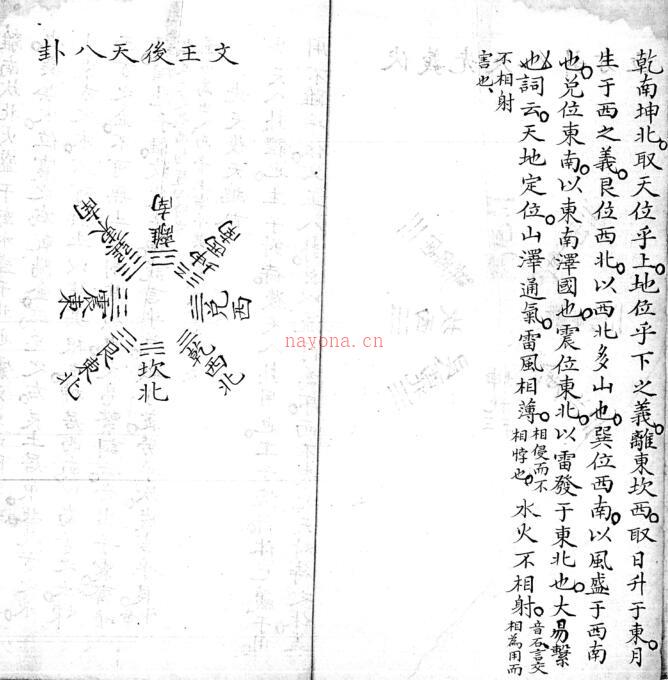 乾南坤北。取天位乎上。地位乎下之義。離東坎西。取日升于東。月
生于西之義。艮位西北。以西北多山也。巽位西南。以風盛于西南
也。兌位東南。以東南澤國也。震位東北。以雷發于東北也。大易繫
也詞云。天地定位。山澤通氣。雷風相薄。相侵而不相悖也。水火不相射。音石言交相為用而
不相射害也、
文王後天八卦
離南
坤西南
兌西
乾西北
坎北
艮東北
震東
巽東南
nayona.cn